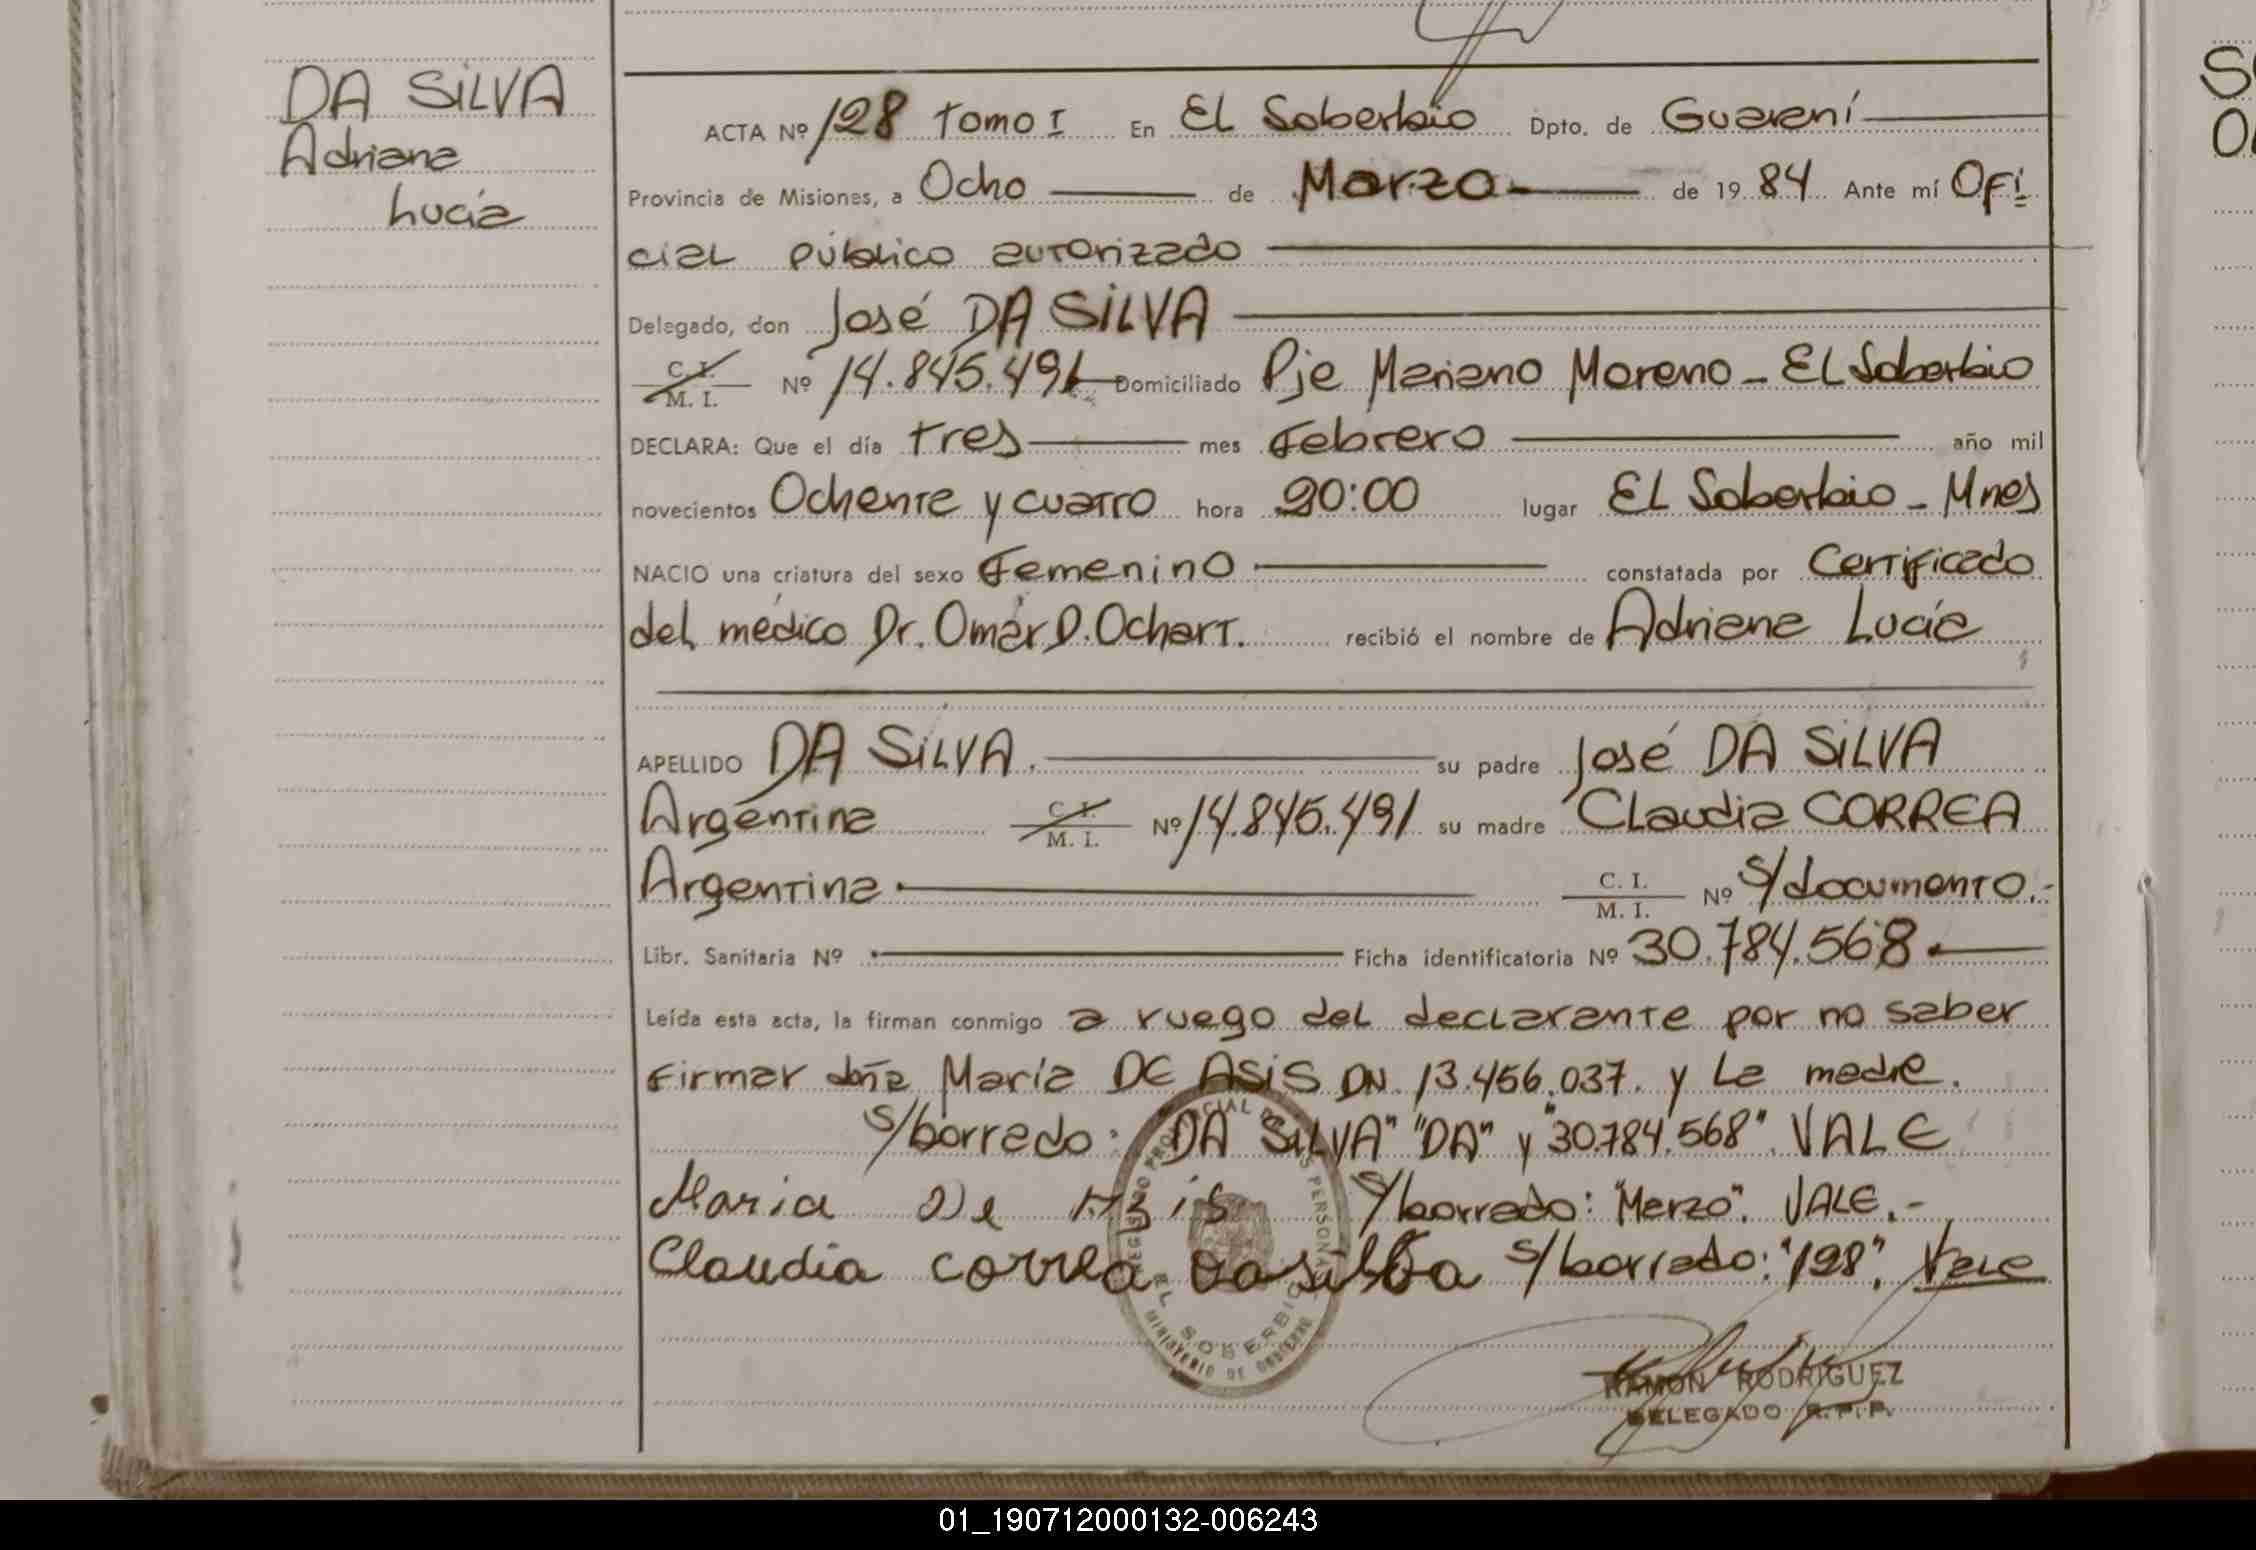 DA SILVA
Adriana
Lucía
ACTA Nº 128 Tomo I En El Soberbio Dpto. de Guaraní
Provincia de Misiones, a Ocho de Marzo de 1984 Ante mí Ofi
cial público autorizado
Delegado, don José DA SILVA
C. I.
M. I. Nº 14.845.491 Domiciliado Pje Mariano Moreno - El Soberbio
DECLARA: Que el día tres mes Febrero año mil
novecientos Ochenta y cuatro hora 20:00 lugar El Soberbio - Mnes
NACIO una criatura del sexo Femenino constatada por Certificado
del médico Dr. Omar D. Ochart. recibió el nombre de Adriana Lucía
APELLIDO DA SILVA. su padre José DA SILVA
Argentina C. I. M. I. Nº 14.845.491 su madre Claudia CORREA
Argentina C. I. M. I. Nº S/documento.-
Libr. Sanitaria Nº Ficha identificatoria Nº 30.784.568
Leída esta acta, la firman conmigo a ruego del declarante por no saber
firmar doña María DE ASIS DN 13.456.037. y la madre.
S/borrado: DA SILVA" "DA" y "30.784.568". VALE
Maria De Asis S/borrado: "Marzo". VALE.-
Claudia correa Dasilba S/borrado: "128". Vale
REGISTRO PROVINCIAL DE LAS PERSONAS
EL SOBERBIO
MINISTERIO DE GOBIERNO
RAMON RODRIGUEZ
DELEGADO R.P.P.
01_190712000132-006243